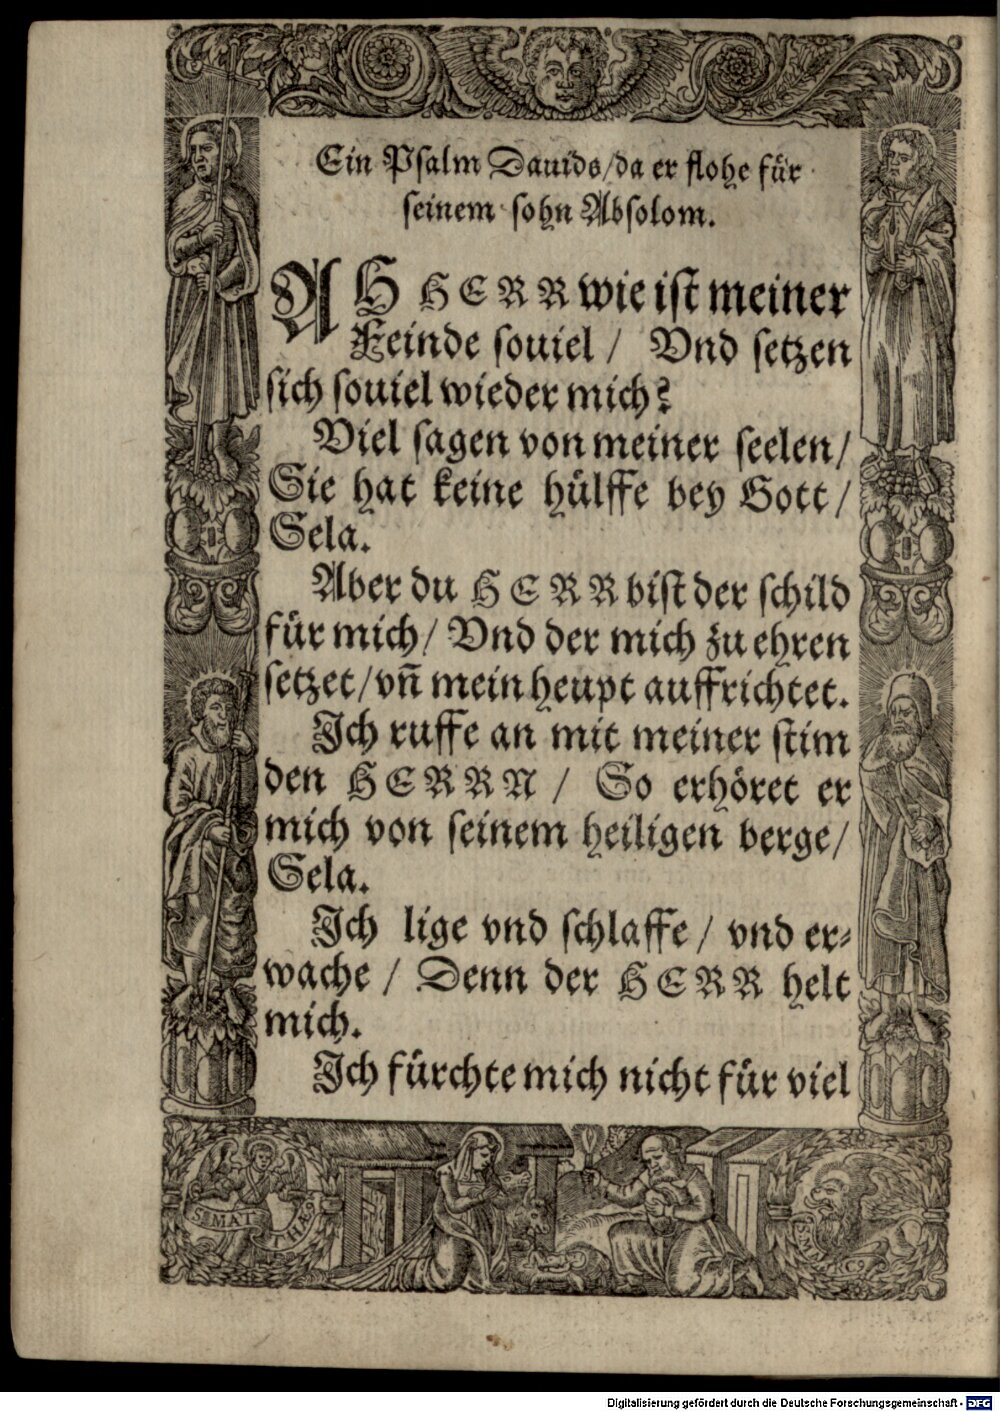 Ein Psalm Dauids/da er flohe für
seinem sohn Absolom.
AH HERR wie ist meiner
Feinde souiel / Vnd setzen
sich souiel wieder mich?
Viel sagen von meiner seelen/
Sie hat keine hülffe bey Gott/
Sela.
Aber du HERR bist der schild
für mich/ Vnd der mich zu ehren
setzet/vñ mein heupt auffrichtet.
Ich ruffe an mit meiner stim
den HERRN / So erhöret er
mich von seinem heiligen berge/
Sela.
Ich lige vnd schlaffe / vnd er-
wache / Denn der HERR helt
mich.
Ich fürchte mich nicht für viel
S. MAT
THÆ9
S. MA
RC9
Digitalisierung gefördert durch die Deutsche Forschungsgemeinschaft - DFG